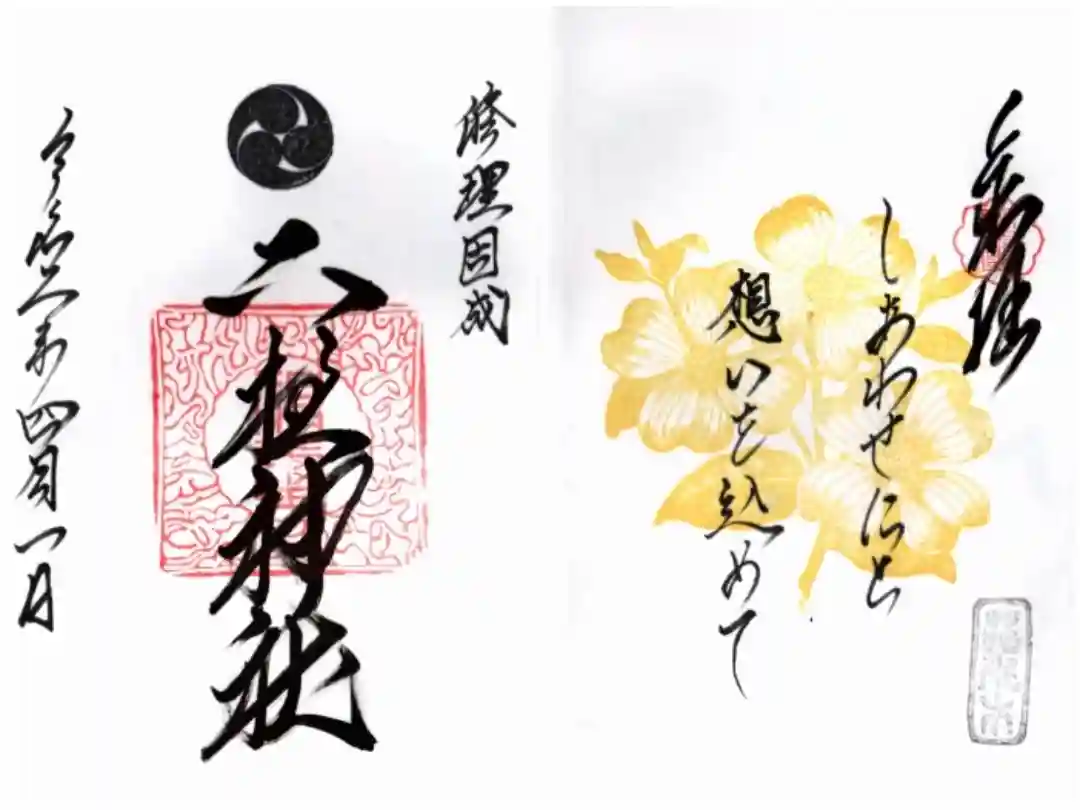 奉拝
しあわせにと
想いを込めて
修理固成
二柱神社
令和六年四月一日